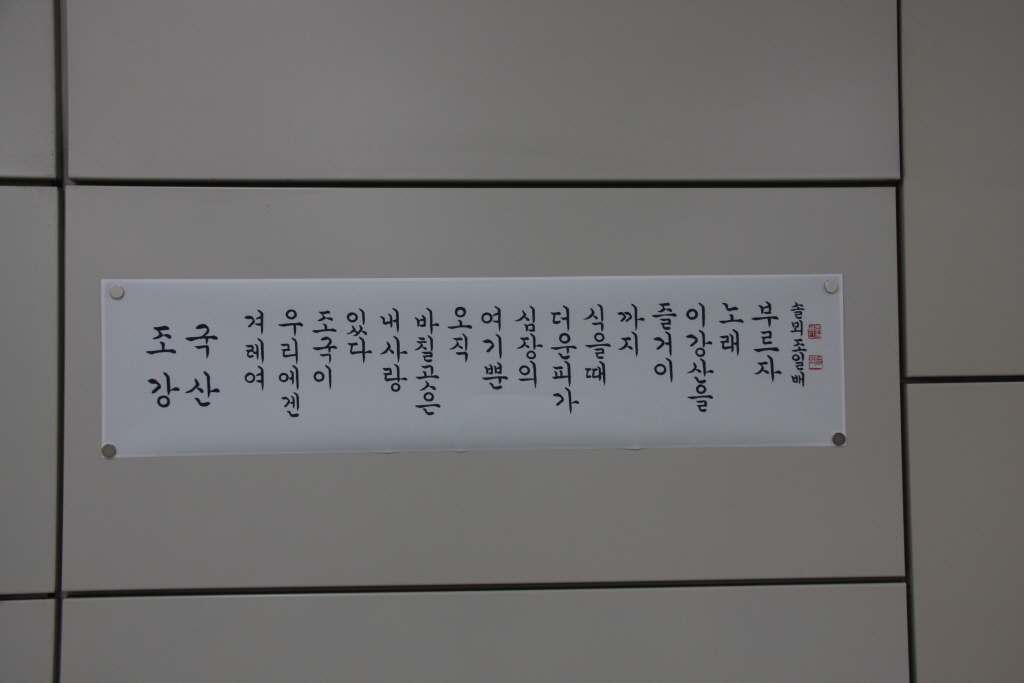 조국
강산
겨레여
우리에겐
조국이
있다
내사랑
바칠곳은
오직
여기뿐
심장의
더운피가
식을때
까지
즐거이
이강산을
노래
부르자
솔뫼조일배